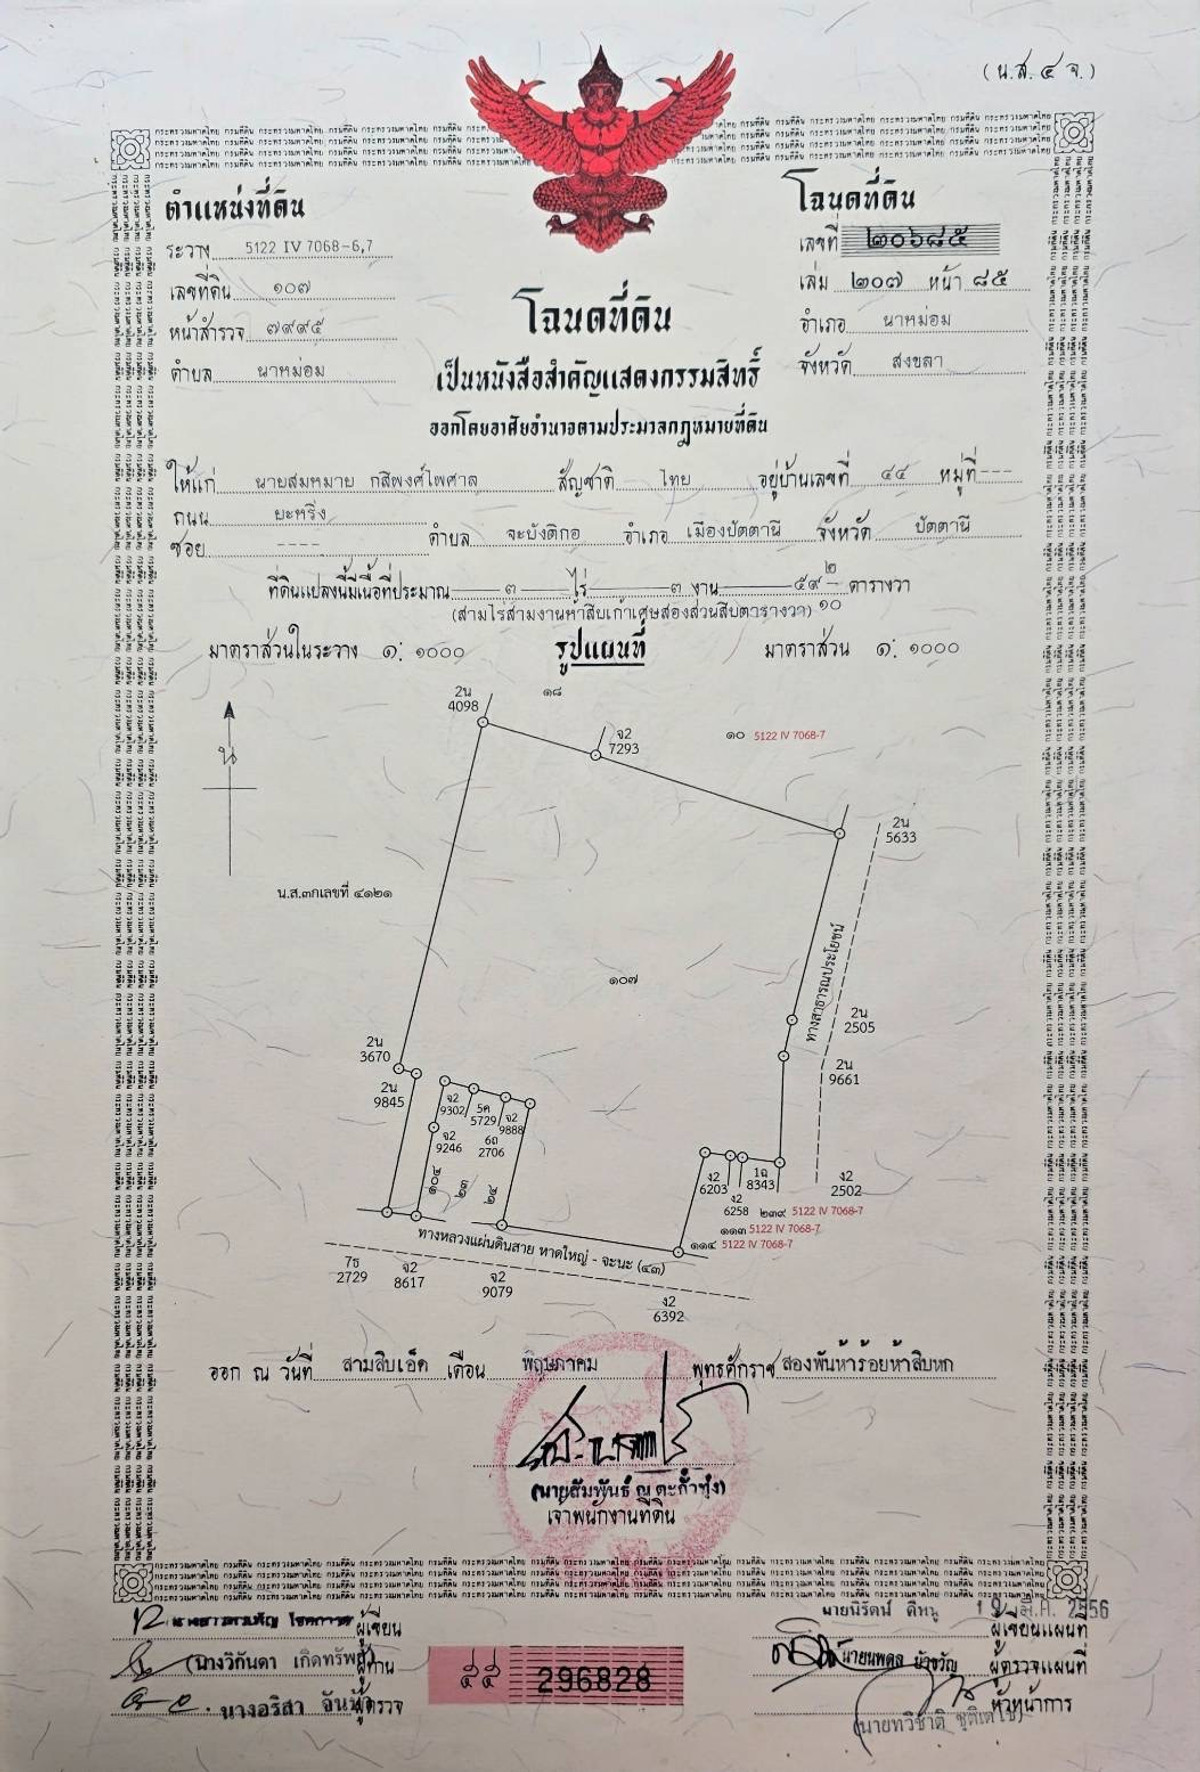 (น.ส.๔ จ.)
ตำแหน่งที่ดิน
ระวาง 5122 IV 7068-6,7
เลขที่ดิน ๑๐๗
หน้าสำรวจ ๗๙๙๕
ตำบล นาหม่อม
โฉนดที่ดิน
เลขที่ ๒๐๖๘๕
เล่ม ๒๐๗ หน้า ๘๕
อำเภอ นาหม่อม
จังหวัด สงขลา
โฉนดที่ดิน
เป็นหนังสือสำคัญแสดงกรรมสิทธิ์
ออกโดยอาศัยอำนาจตามประมวลกฎหมายที่ดิน
ให้แก่ นายสมหมาย กสิพงศ์ไพศาล สัญชาติ ไทย อยู่บ้านเลขที่ ๔๔ หมู่ที่ ---
ถนน ยะหริ่ง
ซอย ---- ตำบล จะบังติกอ อำเภอ เมืองปัตตานี จังหวัด ปัตตานี
ที่ดินแปลงนี้มีเนื้อที่ประมาณ ๓ ไร่ ๓ งาน ๕๙ ๒/๑๐ ตารางวา
(สามไร่สามงานห้าสิบเก้าเศษสองส่วนสิบตารางวา)
มาตราส่วนในระวาง ๑: ๑๐๐๐ รูปแผนที่ มาตราส่วน ๑: ๑๐๐๐
2น
4098
๑๘
จ2
7293
๑๐ 5122 IV 7068-7
น
2น
5633
น.ส.๓กเลขที่ ๔๑๒๑
ทางสาธารณประโยชน์
๑๐๗
2น
2505
2น
3670
2น
9661
2น
9845
จ2
9302
5ค
5729
จ2
9888
จ2
9246
6ถ
2706
๑๐๔
๒๓
๒๔
ง2
6203
1ฉ
8343
ง2
2502
ง2
6258
๒๓๙ 5122 IV 7068-7
๑๑๓ 5122 IV 7068-7
๑๑๔ 5122 IV 7068-7
ทางหลวงแผ่นดินสาย หาดใหญ่ - จะนะ (๔๓)
7ธ
2729
จ2
8617
จ2
9079
ง2
6392
ออก ณ วันที่ สามสิบเอ็ด เดือน พฤษภาคม พุทธศักราช สองพันห้าร้อยห้าสิบหก
(นายสัมพันธ์ ณ ตะกั่วทุ่ง)
เจ้าพนักงานที่ดิน
ผู้เขียน
(นางวิกันดา เกิดทรัพย์) ผู้ทาน
นางอริสา ผู้ตรวจ
๕๕ 296828
นายนิรัตน์ ดีหนู ผู้เขียนแผนที่
นายนพดล บัวขวัญ ผู้ตรวจแผนที่
หัวหน้าการ
(นายทวิชาติ